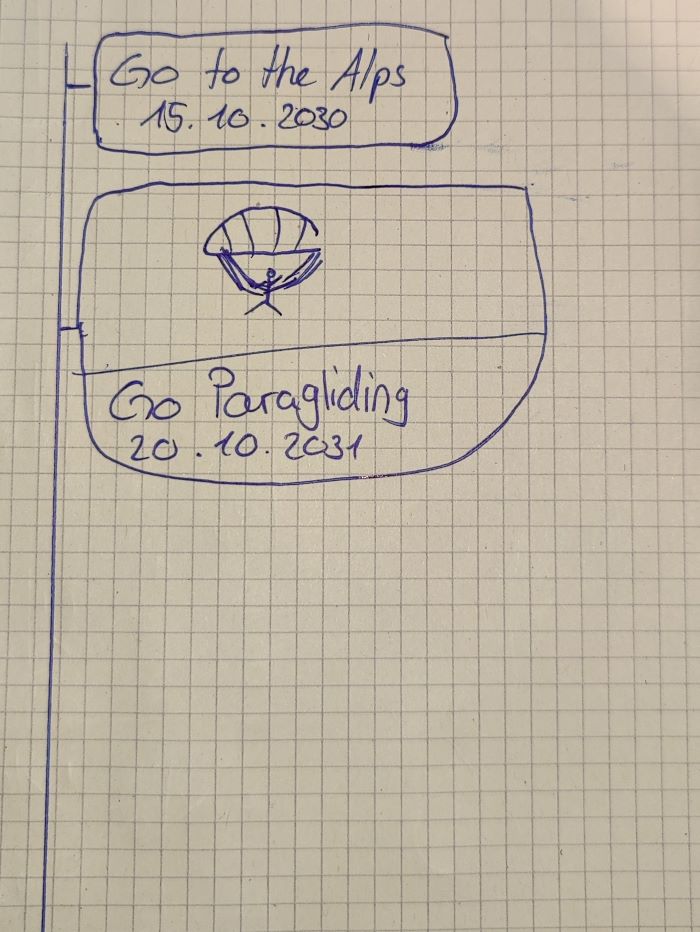 Go to the Alps
15.10.2030
Go Paragliding
20.10.2031